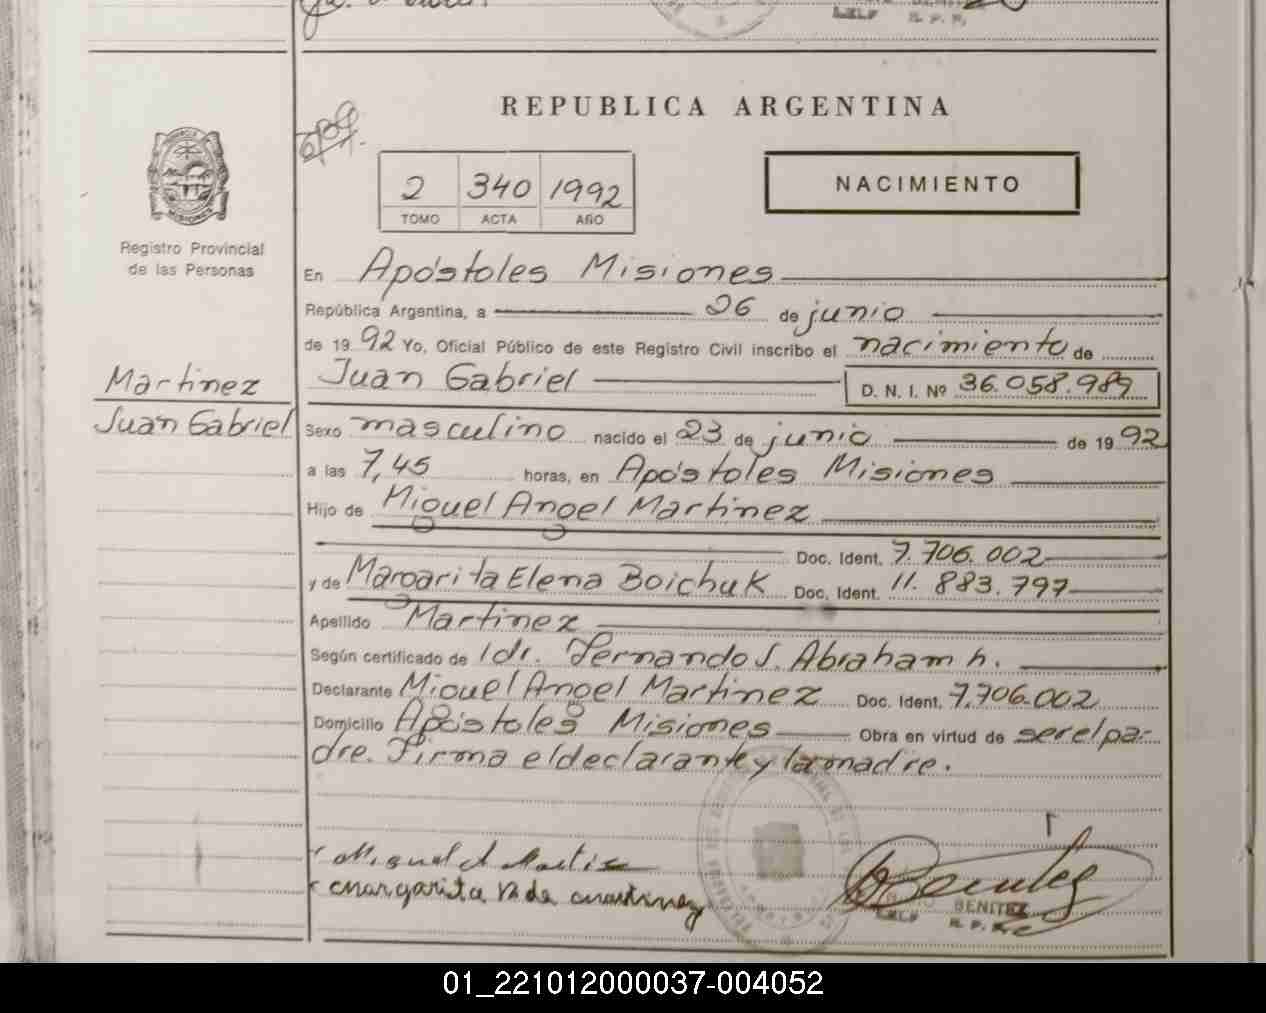 REPUBLICA ARGENTINA
2 340 1992
TOMO ACTA AÑO
NACIMIENTO
MISIONES
Registro Provincial
de las Personas
Martinez
Juan Gabriel
En Apóstoles Misiones
República Argentina, a 26 de junio
de 1992 Yo, Oficial Público de este Registro Civil inscribo el nacimiento de
Juan Gabriel D. N. I. Nº 36.058.989
Sexo masculino nacido el 23 de junio de 1992
a las 7,45 horas, en Apóstoles Misiones
Hijo de Miguel Angel Martinez
Doc. Ident. 7.706.002
y de Margarita Elena Boichuk Doc. Ident. 11.883.797
Apellido Martinez
Según certificado de dr. Fernando J. Abraham h.
Declarante Miguel Angel Martinez Doc. Ident. 7.706.002
Domicilio Apóstoles Misiones Obra en virtud de ser el pa-
dre. Firma el declarante y la madre.
Miguel A Martinez
Margarita B de Martinez
BENITEZ
01_221012000037-004052